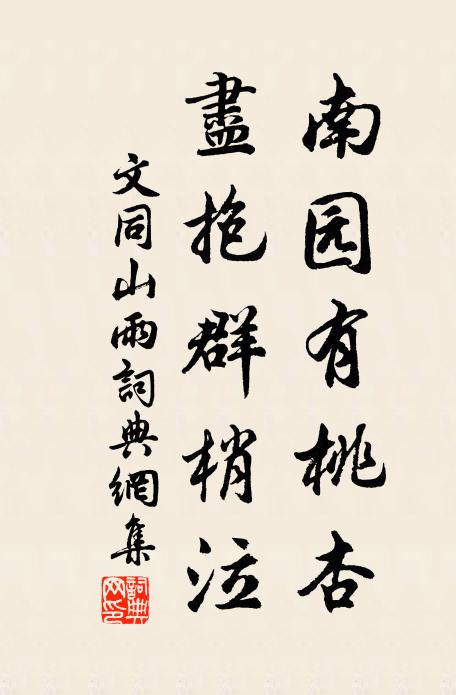 南园有桃杏
盡抱群梢泣
文同山雨詞典網集
詞典网印